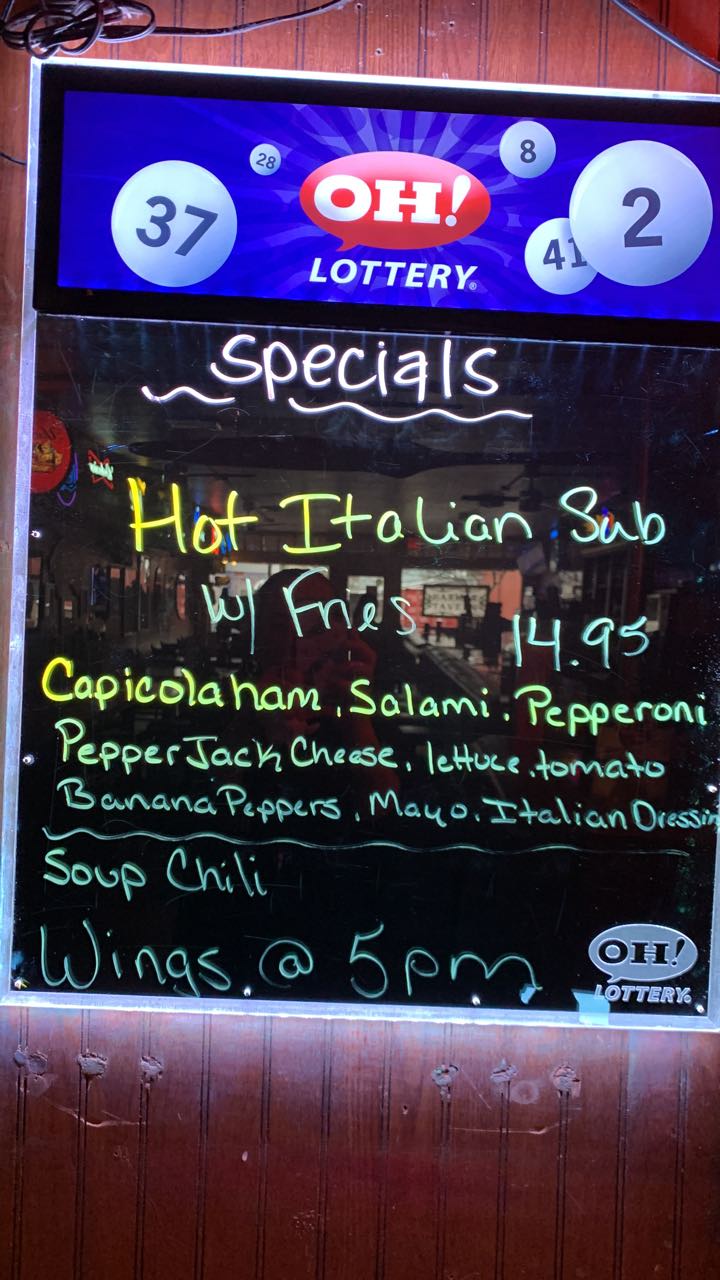 37
28
OH!
8
41
2
LOTTERY®
Specials
Hot Italian Sub
W/ Fries 14.95
Capicola ham, Salami, Pepperoni
Pepper Jack Cheese, lettuce, tomato
Banana Peppers, Mayo, Italian Dressin
Soup Chili
Wings @ 5pm
OH!
LOTTERY®